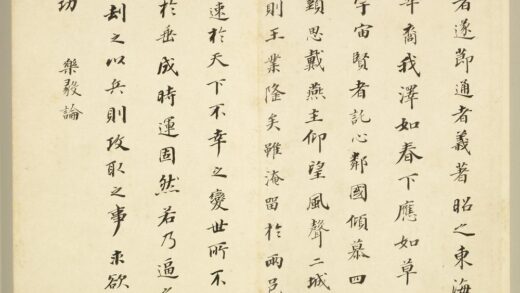 者遂節通者義著昭之東海
華裔我澤如春下應如草
宇宙賢者託心鄰國傾慕四
頸思戴燕主仰望風聲二城
則王業隆矣雖淹留於兩邑
速於天下不幸之變世所不
於垂成時運固然若乃逼之
劫之以兵則攻取之事求欲
功 樂毅論